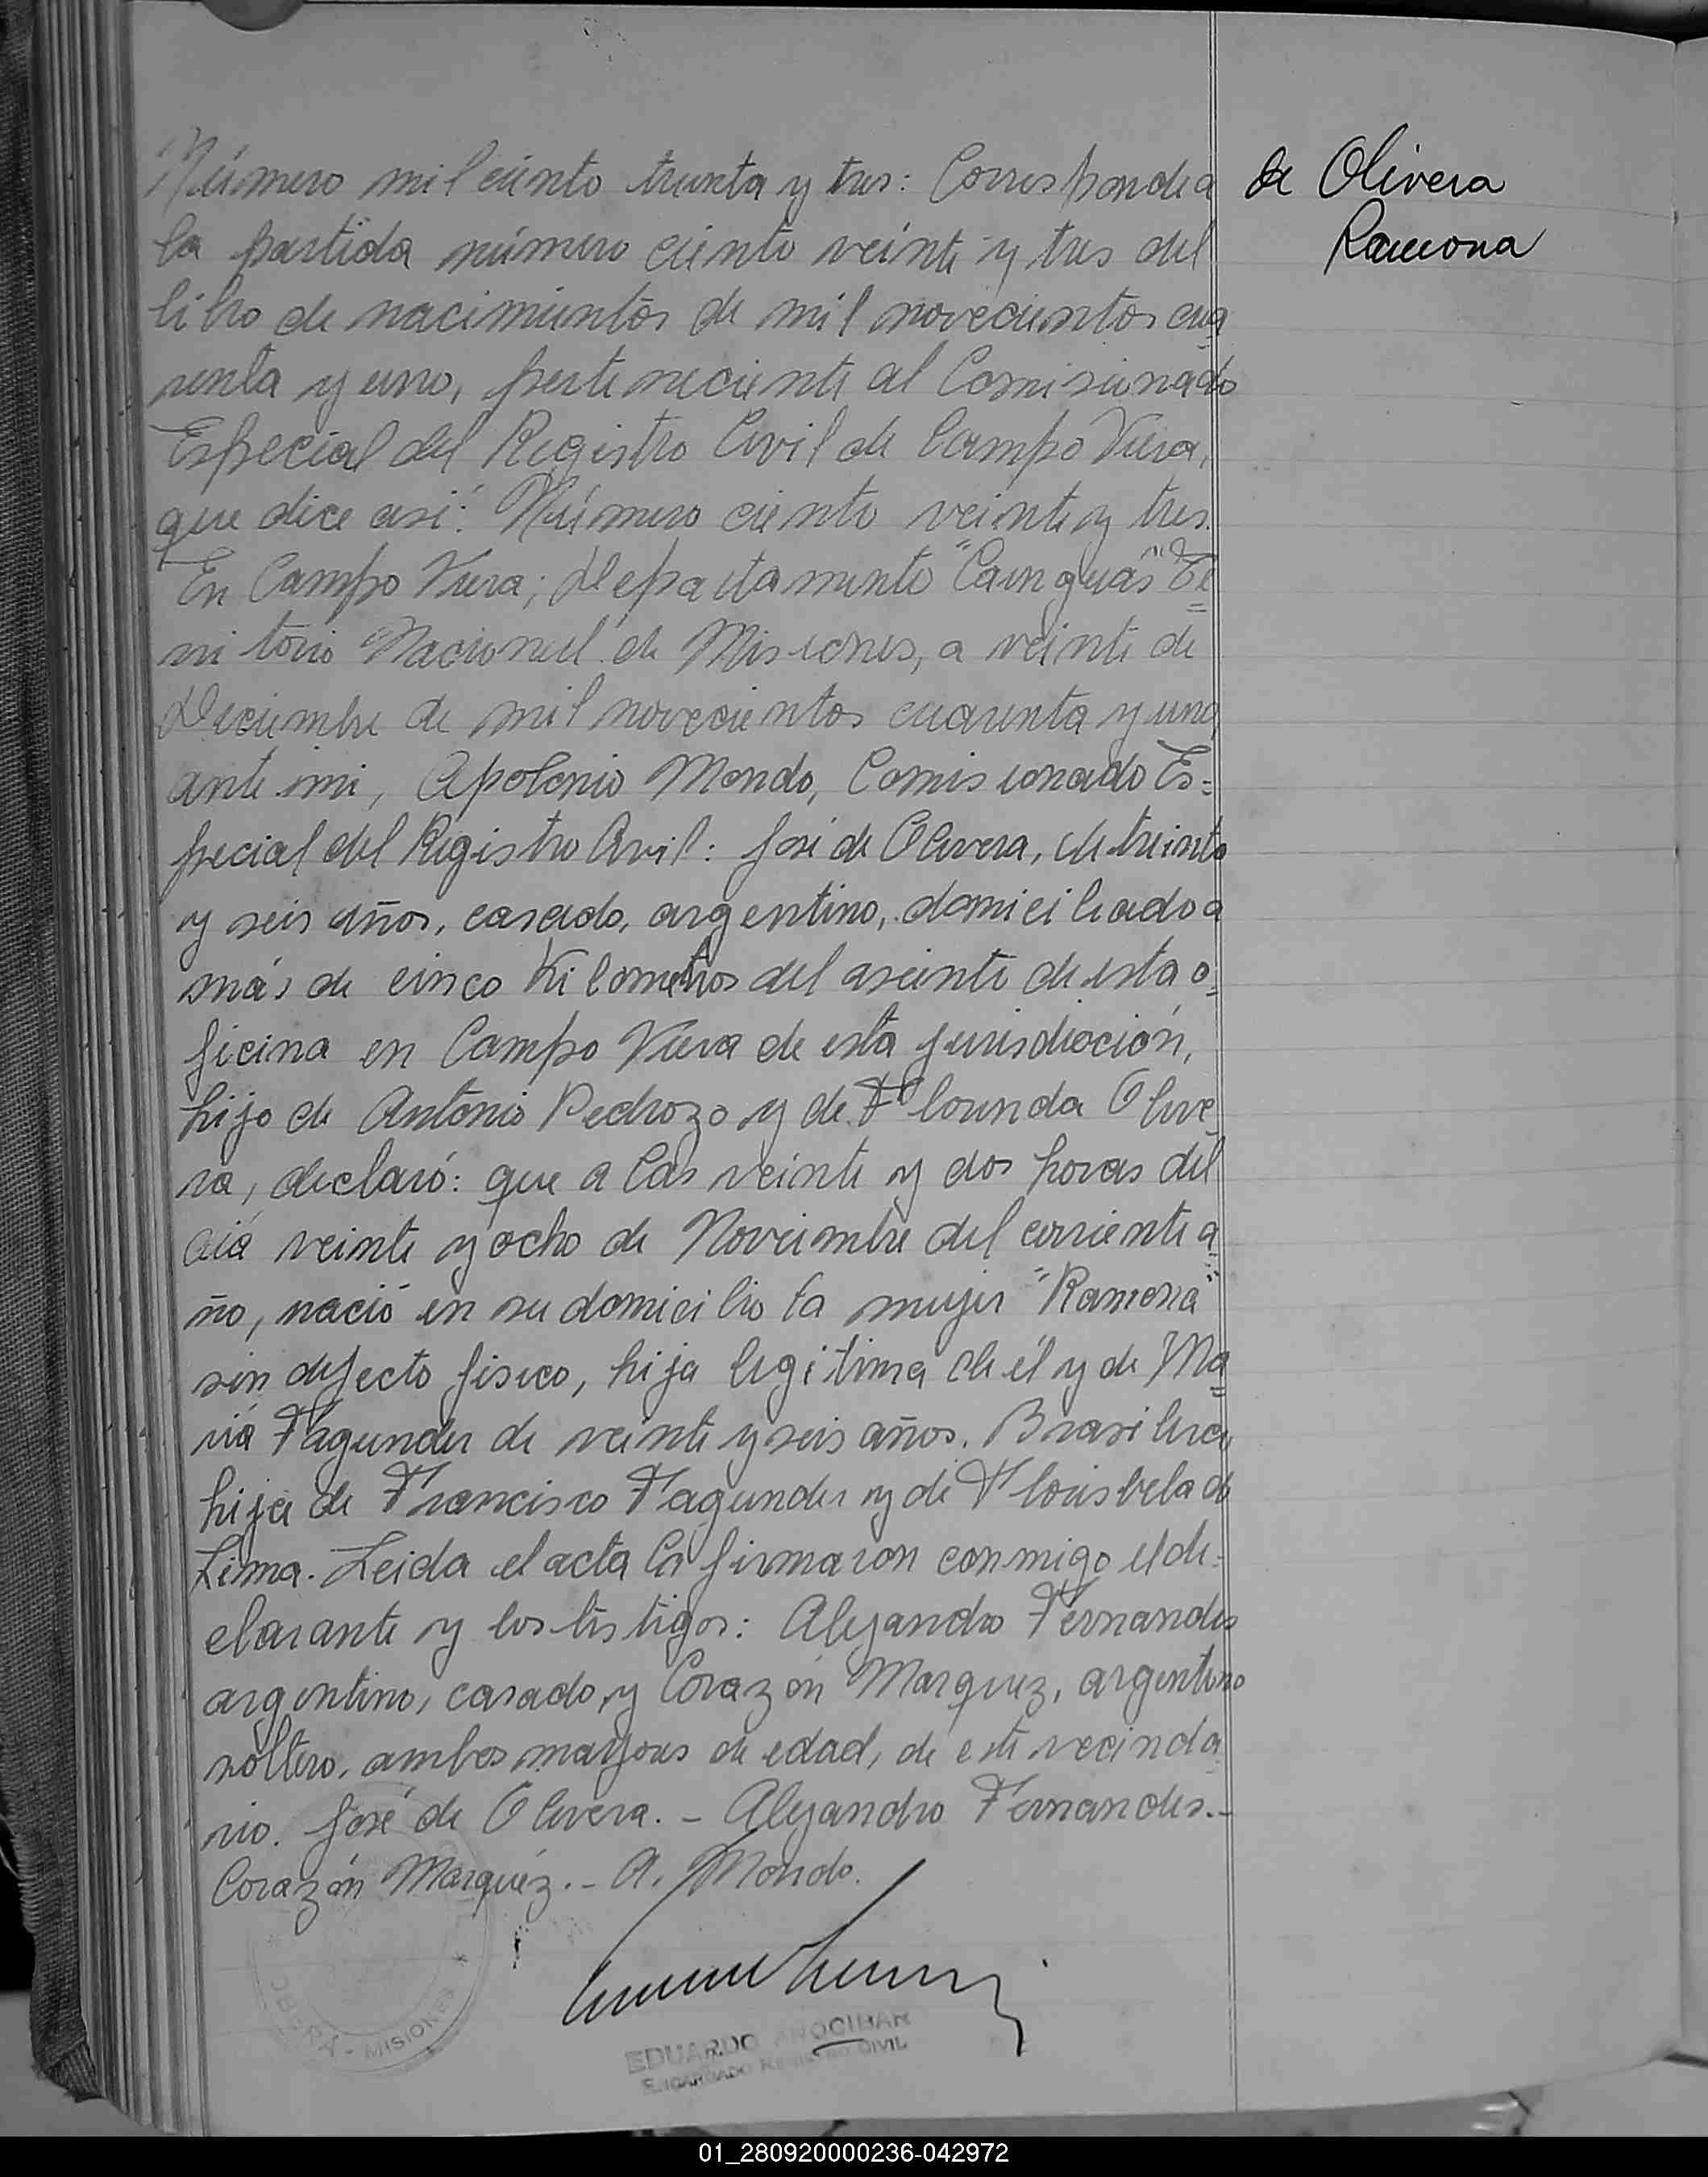 Número mil ciento treinta y tres: Corresponde a
la partida número ciento veinte y tres del
libro de nacimientos de mil novecientos cua
renta y uno, perteneciente al Comisionado
Especial del Registro Civil de Campo Viera,
que dice asi: Número ciento veinte y tres.
En Campo Viera; Departamento "Cainguás" Te=
rritorio Nacional de Misiones, a veinte de
Diciembre de mil novecientos cuarenta y uno,
ante mi, Apolonio Mondo, Comisionado Es=
pecial del Registro Civil: José de Olivera, de treinta
y seis años, casado, argentino, domiciliado a
más de cinco Kilometros del asiento de esta o=
ficina en Campo Viera de esta jurisdicción,
hijo de Antonio Pedrozo y de Florinda Olive
ra, declaró: que a las veinte y dos horas del
dia veinte y ocho de Noviembre del corriente a
ño, nació en su domicilio la mujer "Ramona"
sin defecto fisico, hija legitima de él y de Ma=
ria Fagundes de veinte y seis años. Brasilera,
hija de Francisco Fagundes y de Florisbela de
Lima. Leida el acta la firmaron conmigo el de=
clarante y los testigos: Alejandro Fernandes
argentino, casado, y Corazón Marquez, argentino
soltero, ambos mayores de edad, de este vecinda
rio. José de Olivera. - Alejandro Fernandes.-
Corazón Marquéz. - A. Mondo.
de Olivera
Ramona
OBERA - MISIONES *
EDUARDO ANOCIBAR
ENCARGADO REGISTRO CIVIL
01_280920000236-042972